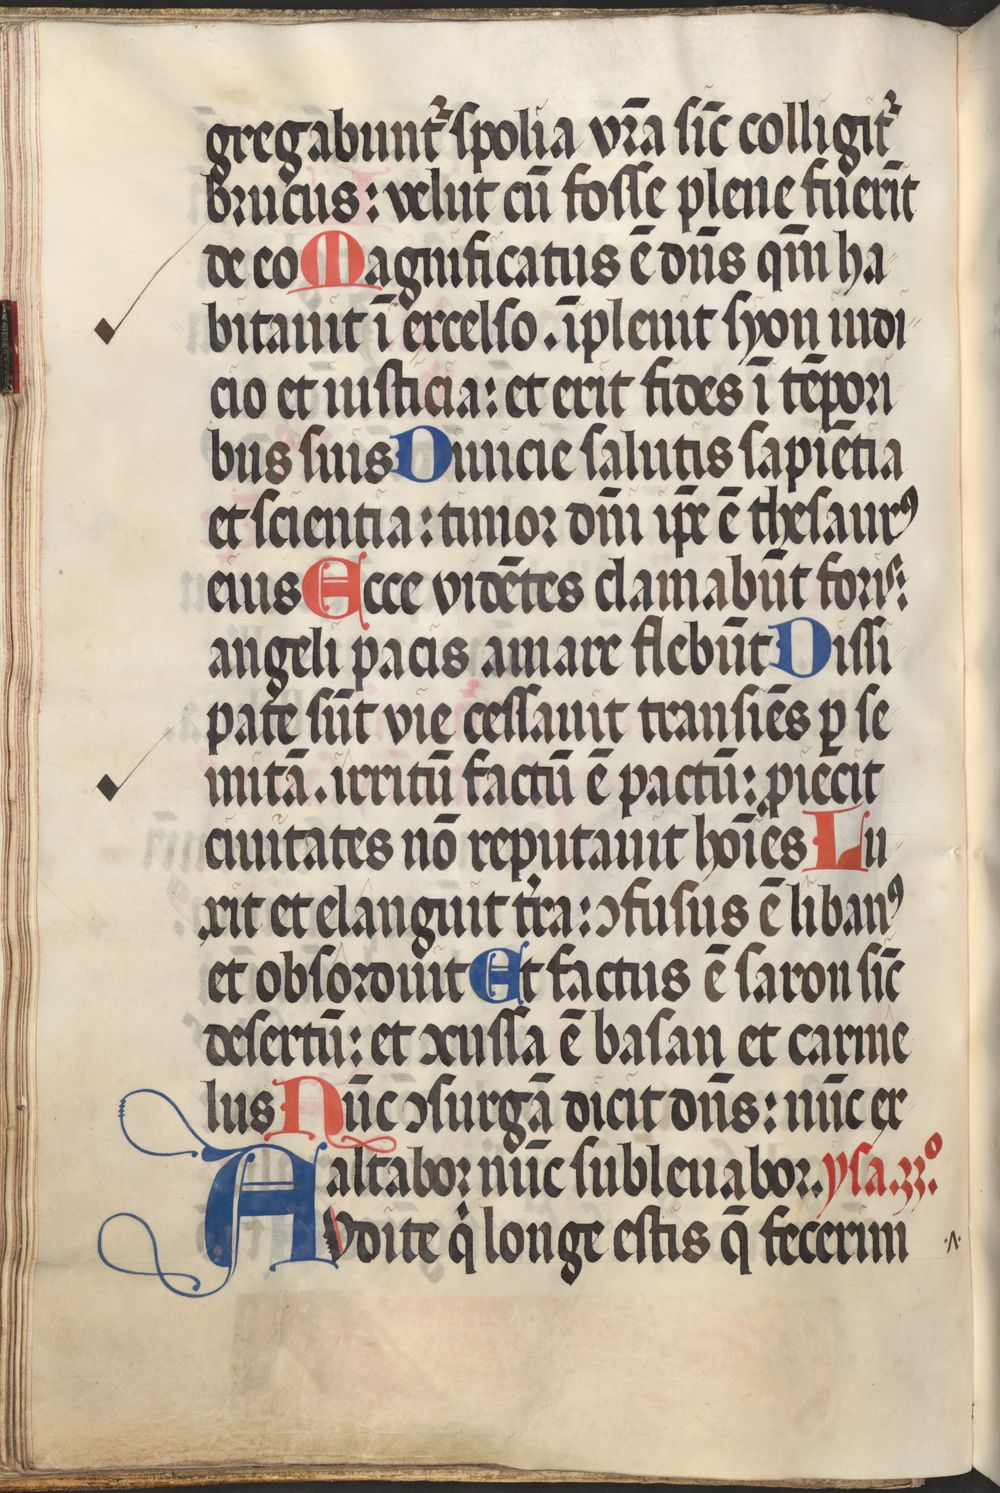 gregabuntᷣ spolia vr̄a sic̄ colligitᷣ
brucus: velut cū fosse plene fuerīt
de eo Magnificatus ē dn̄s qm̄ ha
bitauit ī excelso. īpleuit syon iudi
cio et iusticia: et erit fides ī tēpori
bus suis Diuicie salutis sapiētia
et scientia: timor dn̄i ip̄e ē thesaurꝰ
eius Ecce vidētes clamabūt foris:
angeli pacis amare flebūt Dissi
pate sūt vie cessauit transiēs ꝑ se
mitā. irritū factū ē pactū: ꝓiecit
ciuitates nō reputauit hoīes Lu
xit et elanguit tr̄ra: ꝯfusus ē libanꝰ
et obsorduit Et factus ē saron sic̄
desertū: et ꝯcussa ē basan et carme
lus Nūc ꝯsurgā dicit dn̄s: nūc ex
altabor nūc subleuabor. ysa.33.º
Audite q̇ longe estis q̄ fecerim
.A.